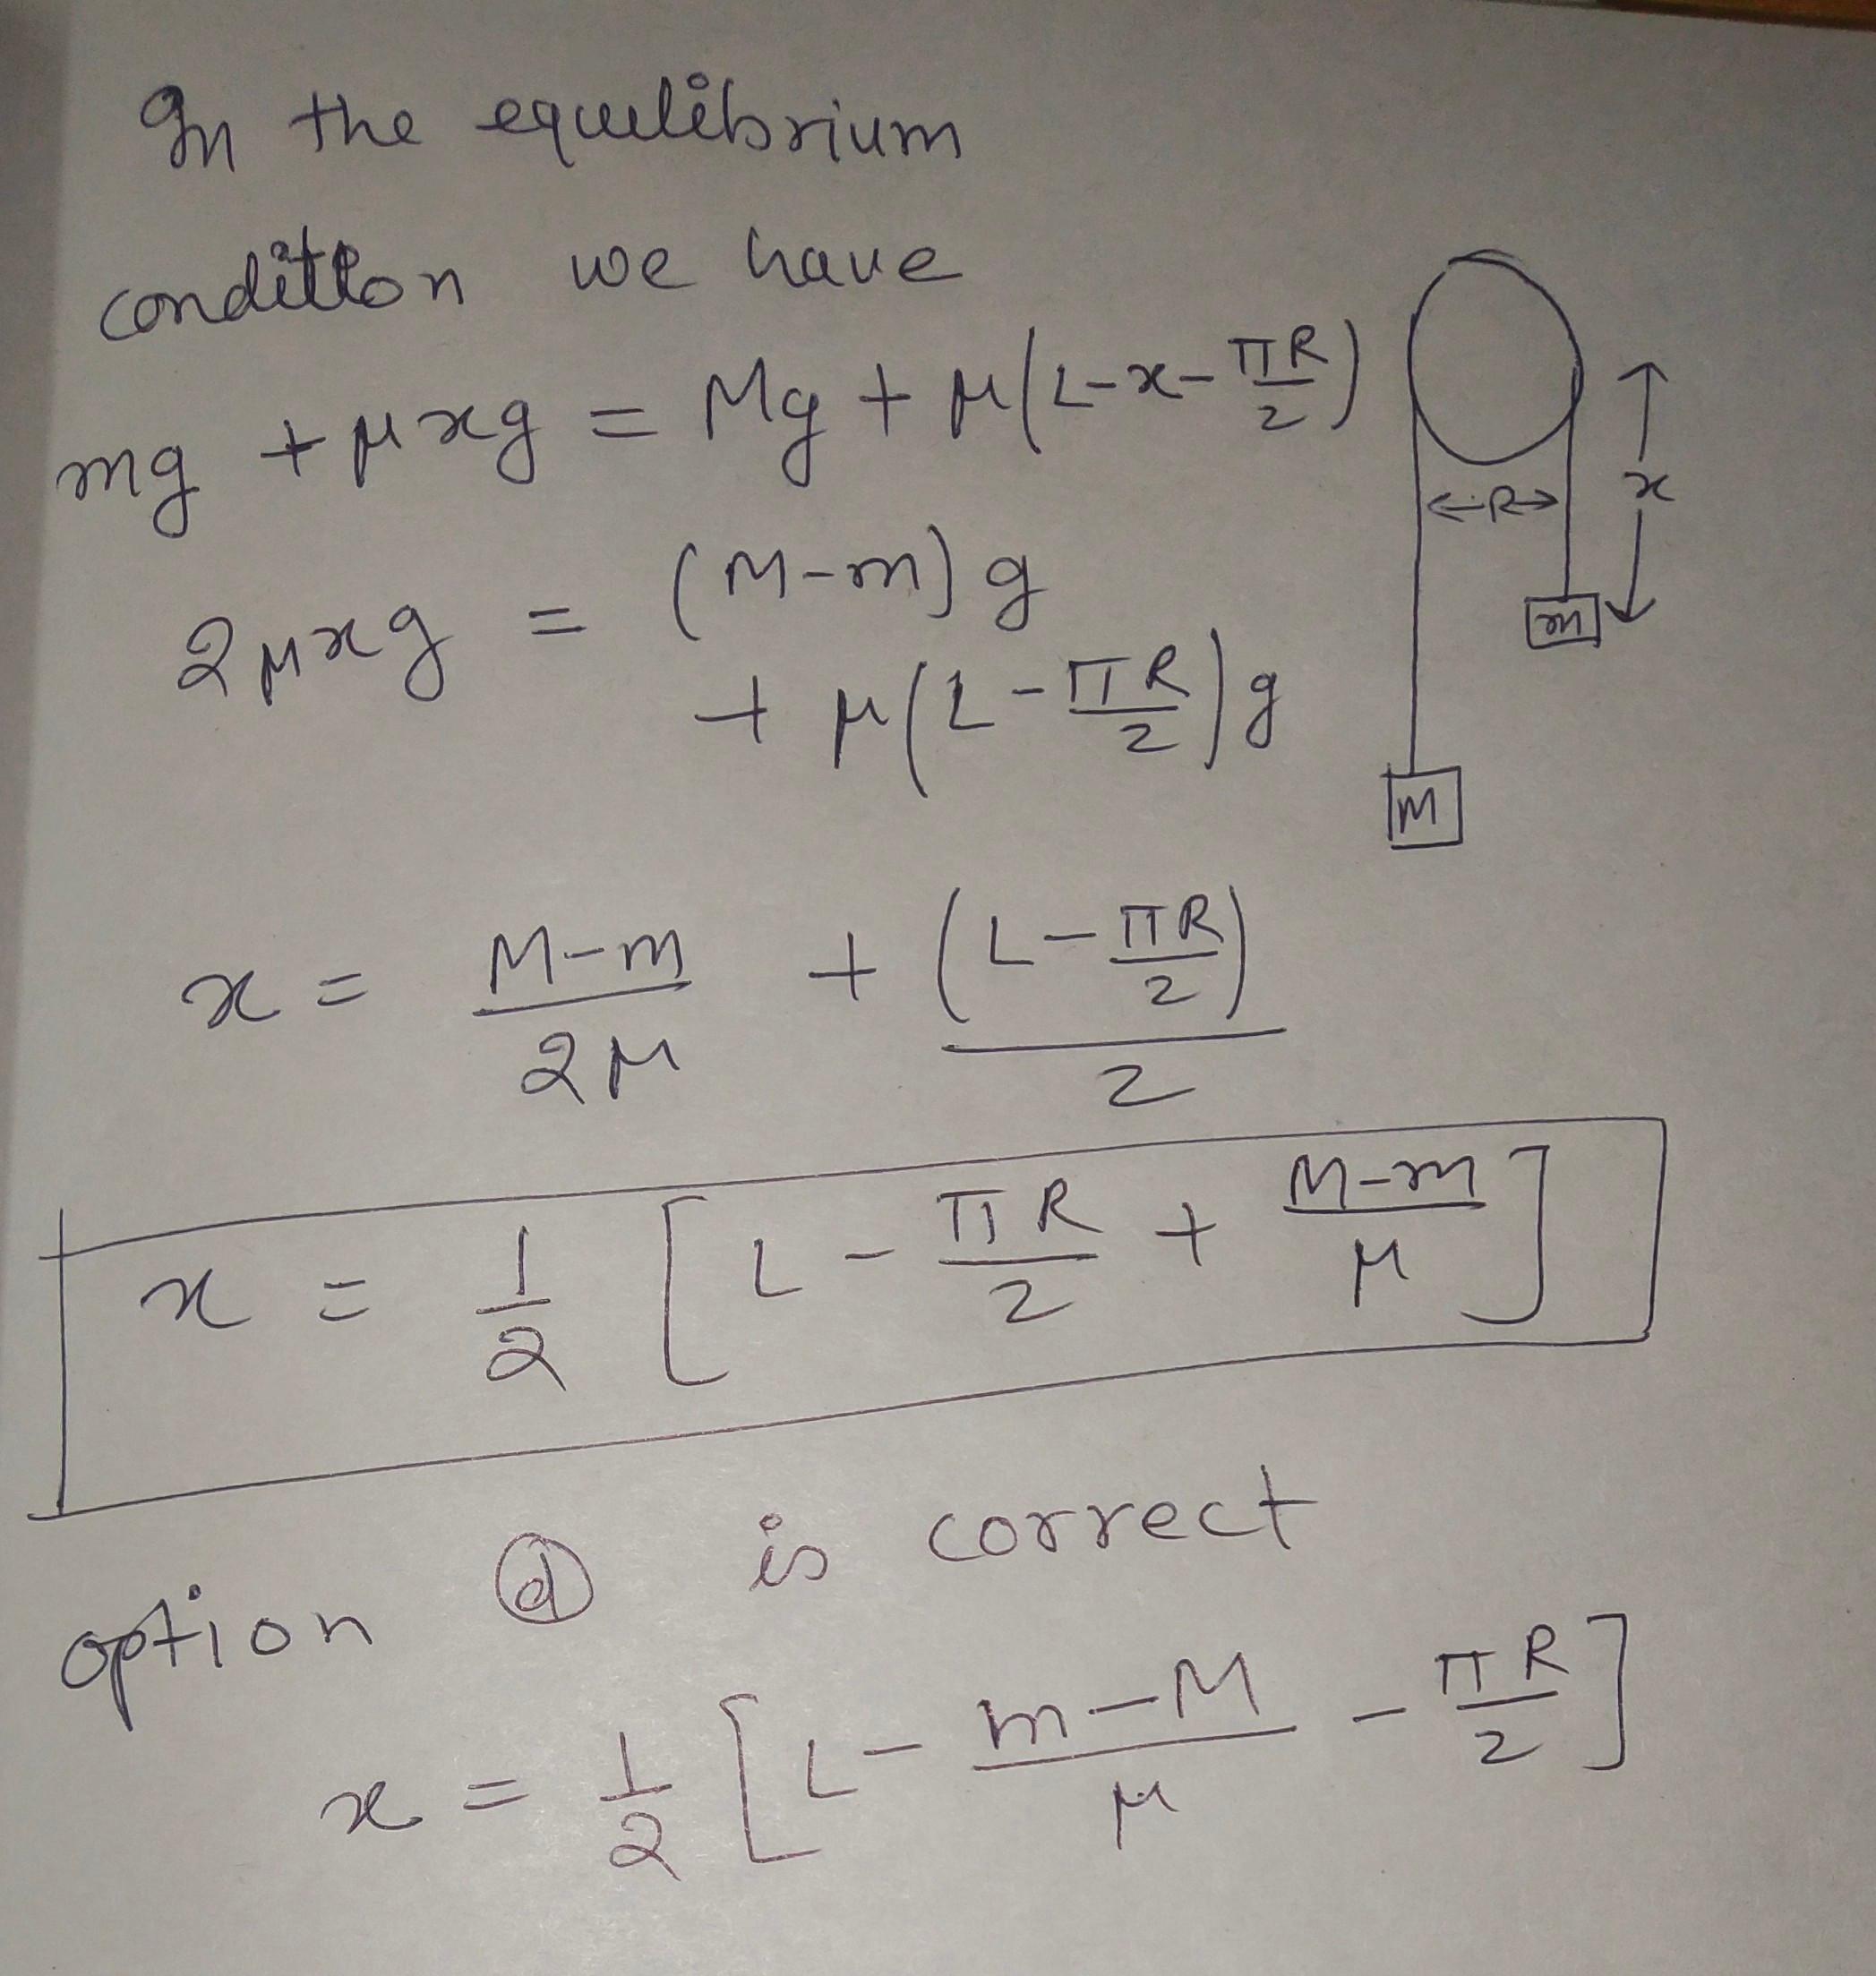 In the equilibrium
condition we have
mg + μxg = Mg + μ(L-x-πR/2)
2μxg = (M-m)g
+ μ(L-πR/2)g
x
←R→
m
M
x = M-m/2μ + (L-πR/2)/2
x = 1/2 [L - πR/2 + M-m/μ]
option (d) is correct
x = 1/2 [L - m-M/μ - πR/2]